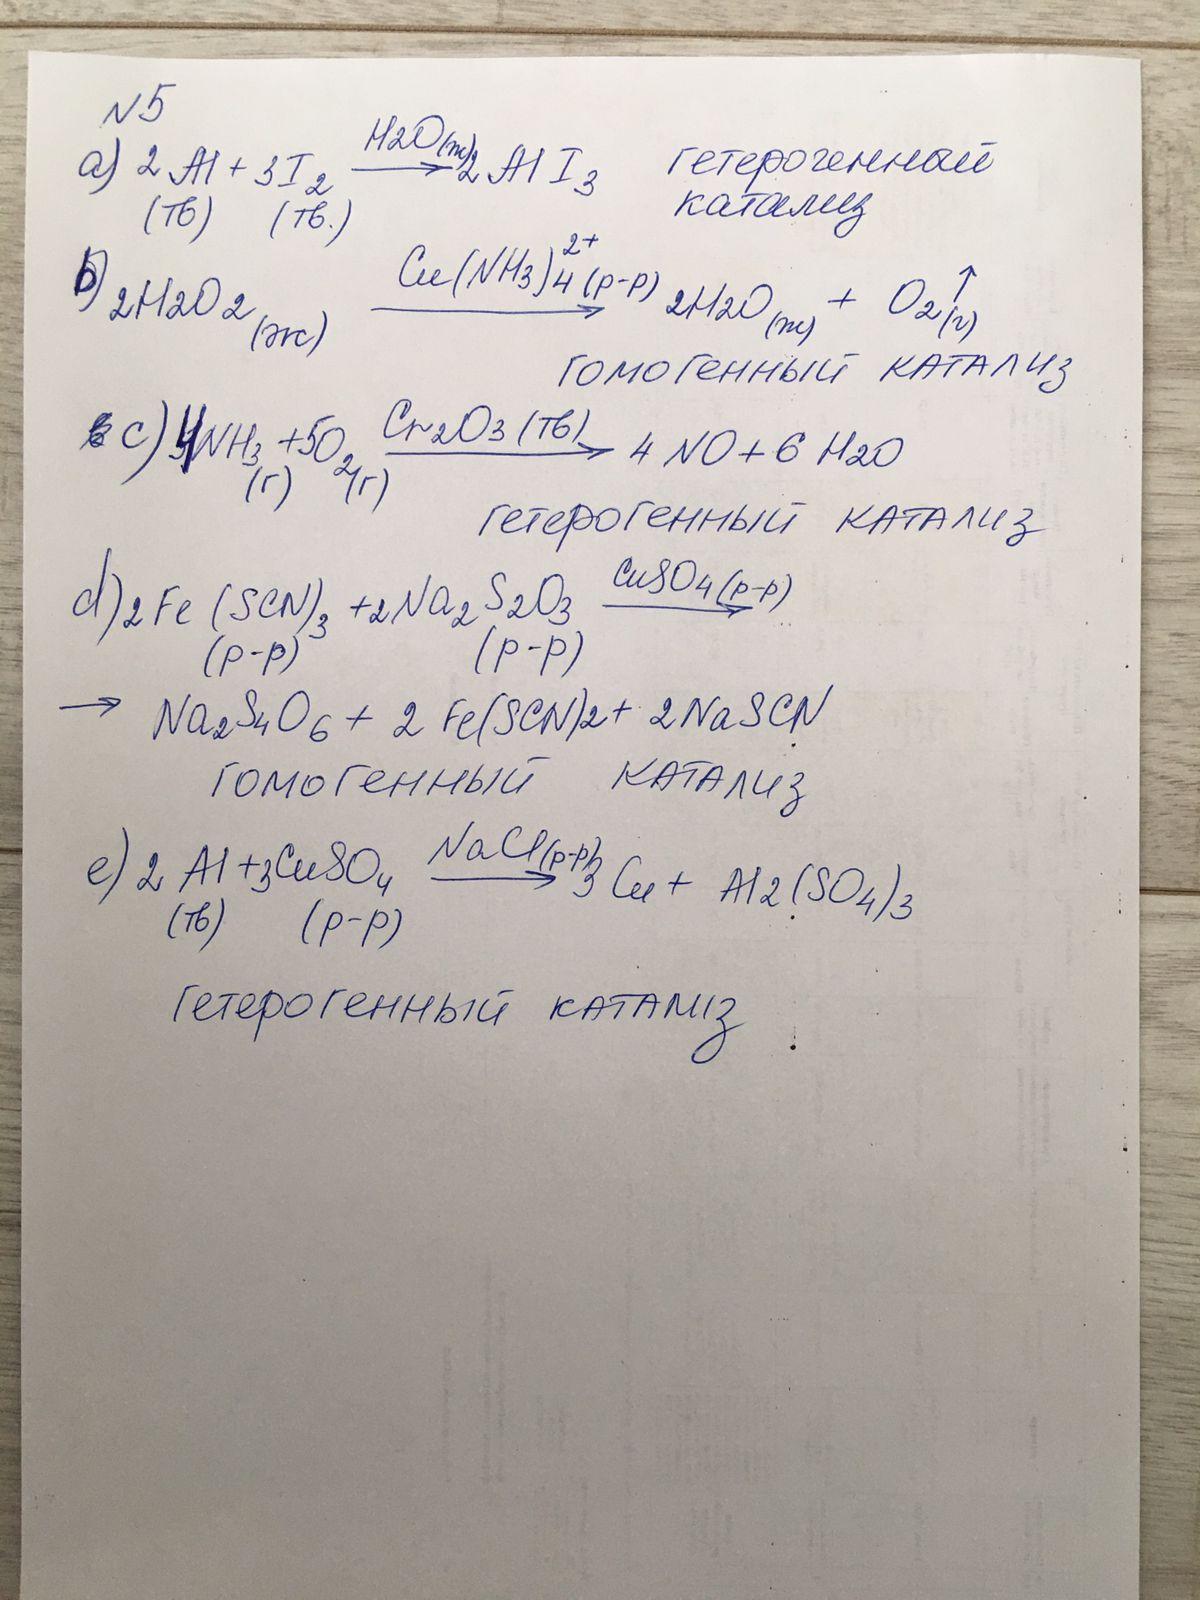 N5
a) 2Al + 3I2 H2O(ж)→ 2AlI3 гетерогенный
(тв) (тв.) катализ
b) 2H2O2(ж) Cu(NH3)4 2+ (р-р)→ 2H2O(ж) + O2(г)↑
гомогенный катализ
c) 4NH3 + 5O2 Cr2O3 (тв)→ 4NO + 6H2O
(г) (г)
гетерогенный катализ
d) 2Fe(SCN)3 + 2Na2S2O3 CuSO4 (р-р)→
(р-р) (р-р)
→ Na2S4O6 + 2Fe(SCN)2 + 2NaSCN
гомогенный катализ
e) 2Al + 3CuSO4 NaCl(р-р)→ 3Cu + Al2(SO4)3
(тв) (р-р)
гетерогенный катализ